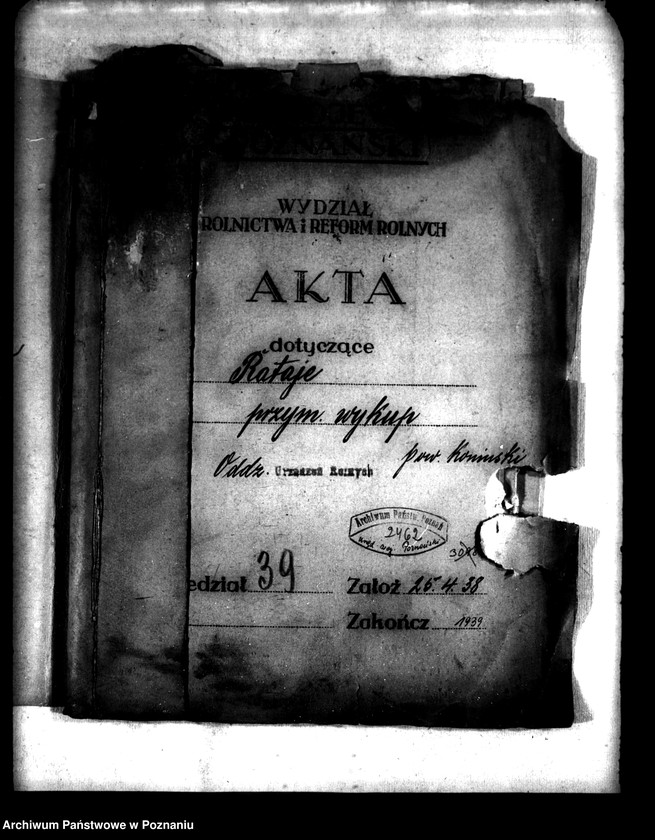 POZNAŃSKI
WYDZIAŁ
ROLNICTWA i REFORM ROLNYCH
AKTA
dotyczące
Rataje
przym. wykup
Oddz. Urządzeń Rolnych pow Koniński
Archiwum Państw. Poznań
2462
Urząd Woj. Poznański
edział 39 Założ 25.4.38
Zakończ 1939
Archiwum Państwowe w Poznaniu